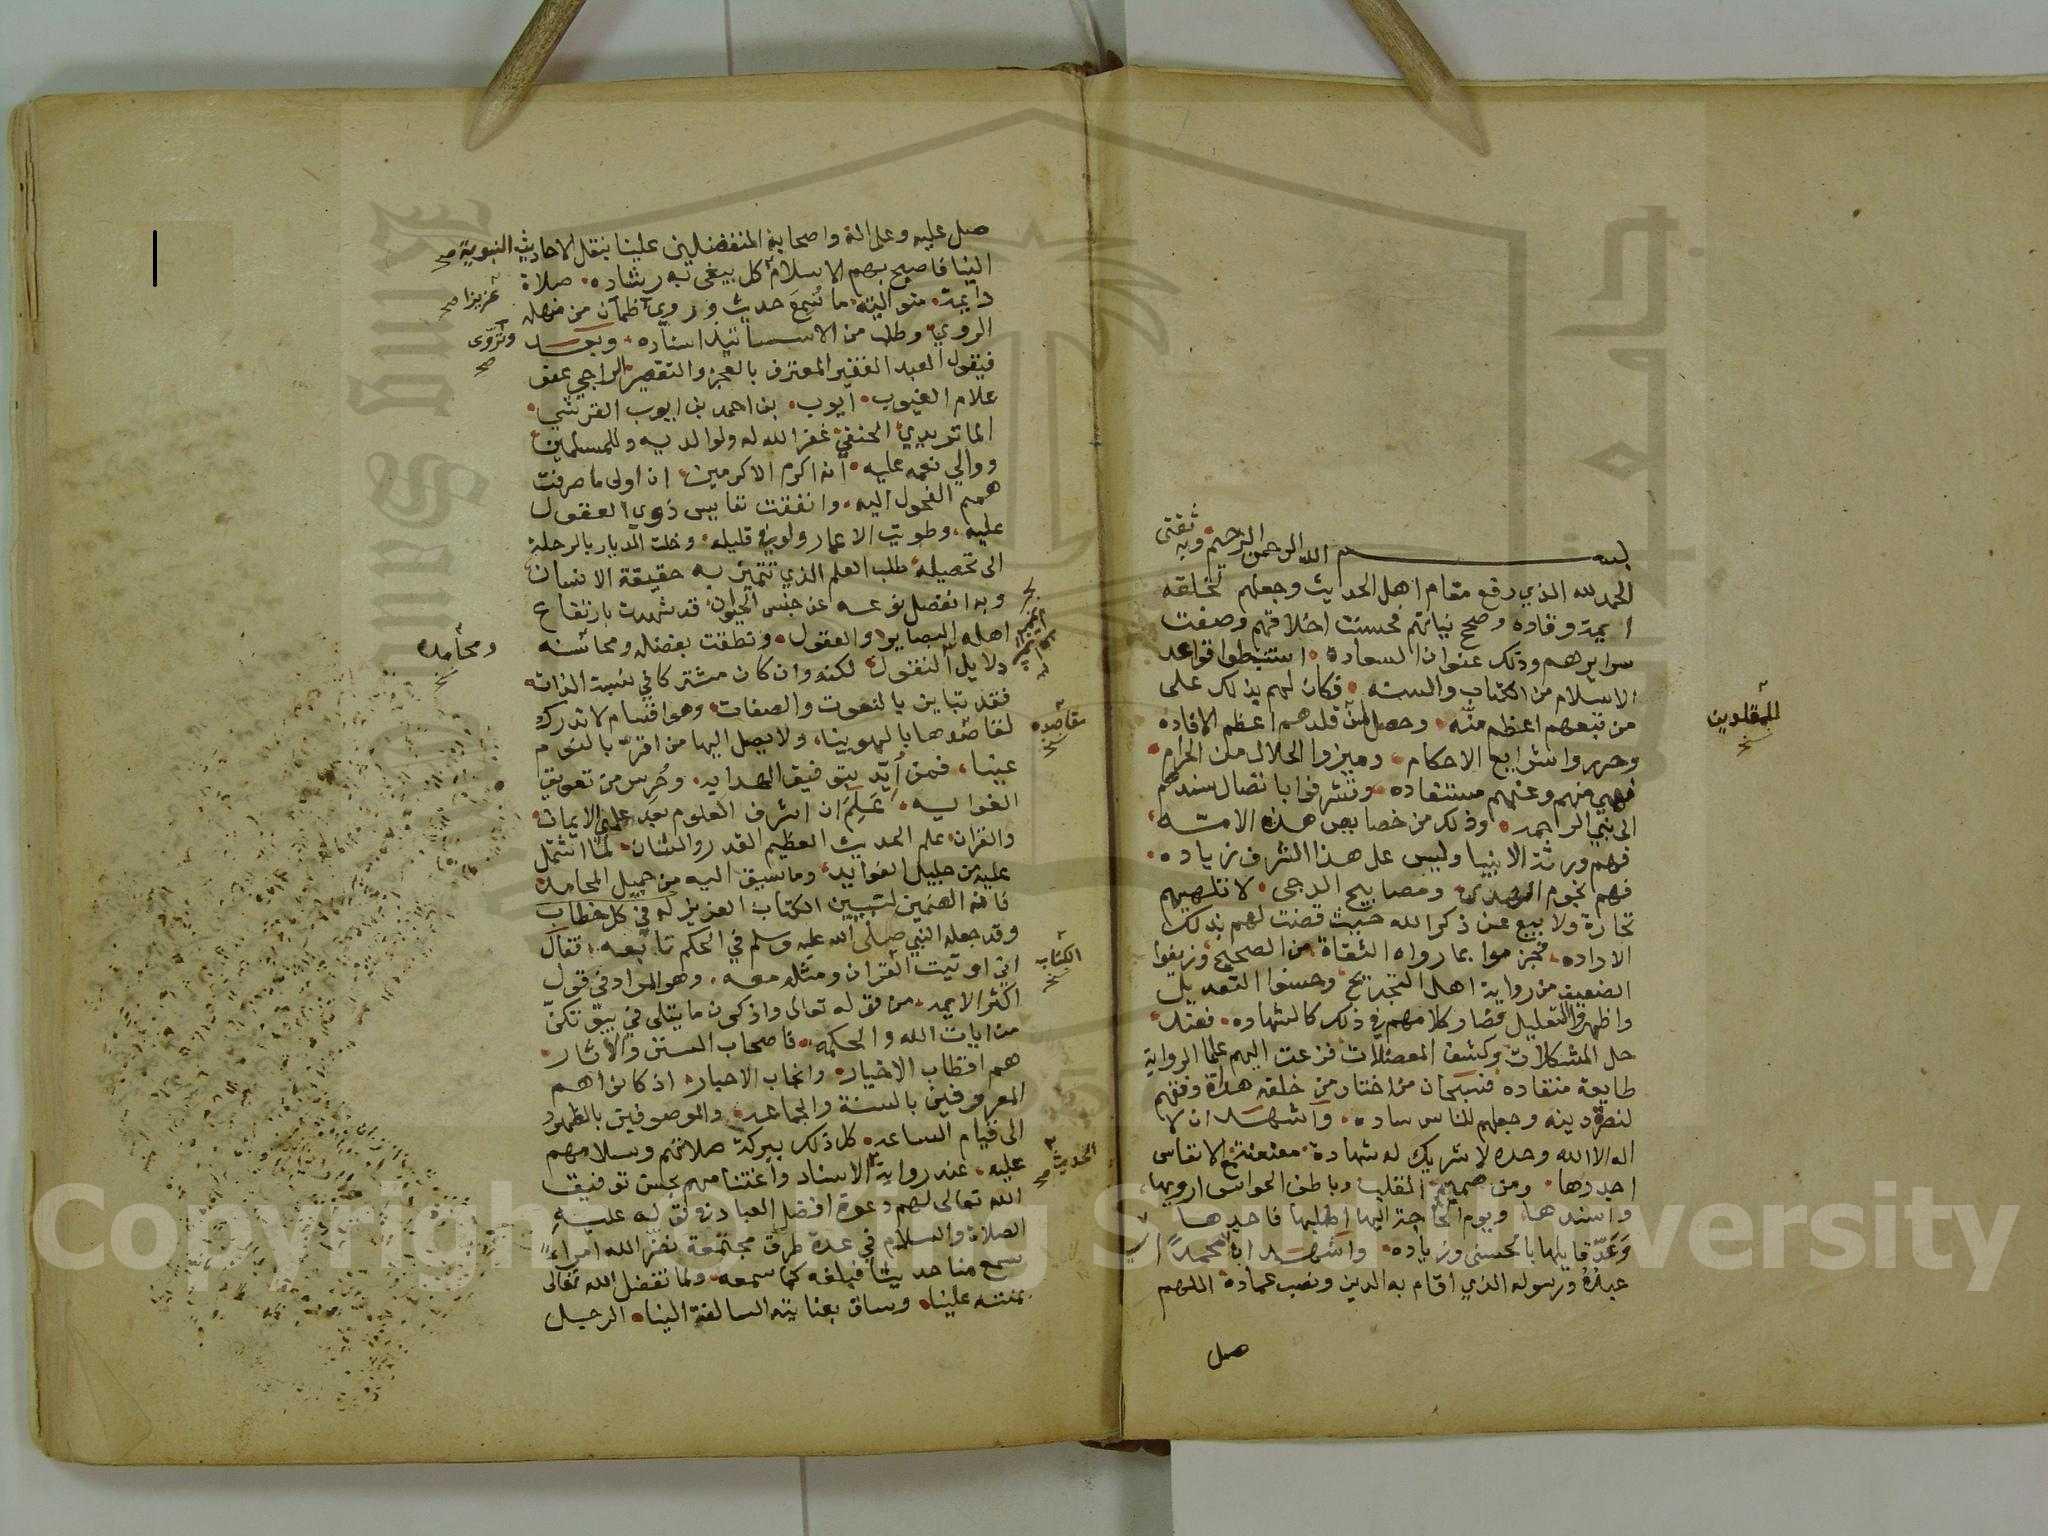 بسم الله الرحمن الرحيم وبه ثقتي
الحمد لله الذي رفع مقام اهل الحديث وجعلهم لخلقه
ايمة وقاده وصحح نياتهم فحسنت اخلاقهم وصفت
سرايرهم وذلك عنوان السعادة استنبطوا قواعد
الاسلام من الكتاب والسنه فكان لهم بذلك على
من تبعهم اعظم منه وحصل لمن قلدهم اعظم الافاده
للمقلدين
وحرروا شرايع الاحكام وميزوا الحلال من الحرام
فهي منهم وعنهم مستفاده وتشرفوا باتصال سندهم
الى نبي الرحمة وذلك من خصايص هذه الامه
فهم ورثة الانبيا وليس على هذا الشرف زياده
فهم نجوم الهدى ومصابيح الدجى لا تلهيهم
تجارة ولا بيع عن ذكر الله حيث قضت لهم بذلك
الاراده فجزموا بما رواه الثقاة من الصحيح وزيفوا
الضعيف من رواية اهل التجريح وحسنوا التعديل
واظهروا التعليل فصار كلامهم في ذلك كالشهاده فعند
حل المشكلات وكشف المعضلات فزعت اليهم علما الرواية
طايعة منقاده فسبحان من اختار من خلقه هداة وفقهم
لنصرة دينه وجعلهم للناس ساده واشهد ان لا
اله الا الله وحده لا شريك له شهادة معنعنة مع الانفاس
اجددها ومن صميم القلب وباطن الحواس ارويها
واسندها ويوم الحاجة اليها اطلبها فاجدها
وعد قايلها بالحسنى وزياده واشهد ان محمدا
عبده ورسوله الذي اقام به الدين ونصب عماده اللهم
صل
صل عليه وعلى اله واصحابه المتفضلين علينا بنقل الاحاديث النبوية صح
الينا فاصبح بهم الاسلام كل يبغى به رشاده صلاة
عزيزا صح
دايمة متواليه ما سمع حديث وروى ظمآن من منهله
وتروى صح
الروي وطلب من الاسانيد اسناده وبعد
فيقول العبد الفقير المعترف بالعجز والتقصير الراجي عفو
علام الغيوب ايوب بن احمد بن ايوب القرشي
الماتريدي الحنفي غفر الله له ولوالديه وللمسلمين
ووالى نعمه عليه انه اكرم الاكرمين ان اولى ما صرفت
همم الفحول اليه وانفقت نفايس ذوي العقول
عليه وطويت الاعمار ولو في قليله وخلت الديار بالرحلة
الى تحصيله طلب العلم الذي تتميز به حقيقة الانسان
وبه انفصل نوعه عن جنس الحيوان قد شهدت بارتفاع
اهله البصاير والعقول ونطقت بفضله ومحاسنه
ومحامده
دلايل النقول لكنه وان كان مشتركا في نسبة الذات
فقد تباين بالنعوت والصفات وهو اقسام لا تدرك
مقاصده
لقاصدها بالهوينا ولا يصل اليها من اقر بالنوم
عينا فمن ايد بتوفيق الهدايه وحرس من تعويق
الغوايه علم ان اشرف العلوم بعد علمي الايمان
والقران علم الحديث العظيم القدر والشان لما اشتمل
عليه من جليل الفوايد وما سيق اليه من جميل المحامد
فانه الضمين لتبيين الكتاب العزيز له في كل خطاب
وقد جعله النبي صلى الله عليه وسلم في الحكم تابعه فقال
اني اوتيت القران ومثله معه وهو المراد في قول
الكتاب
اكثر الايمه من قوله تعالى واذكرن ما يتلى في بيوتكن
من ايات الله والحكمه فاصحاب السنن والاثار
هم اقطاب الاخيار وانجاب الاحبار اذ كانوا هم
المعروفين بالسنة والجماعه والموصوفين بالظهور
الى قيام الساعه كل ذلك ببركة صلاتهم وسلامهم
الحديث صح
عليه عند رواية الاسناد واغتنامهم بحسن توفيق
الله تعالى لهم دعوة افضل العباد في قوله عليه
الصلاة والسلام في عدة طرق مجتمعة نضر الله امراء
سمع منا حديثا فبلغه كما سمعه ولما تفضل الله تعالى
بمنته علينا وساق بعنايته السالفة الينا الرجل
Copyright © King Saud University